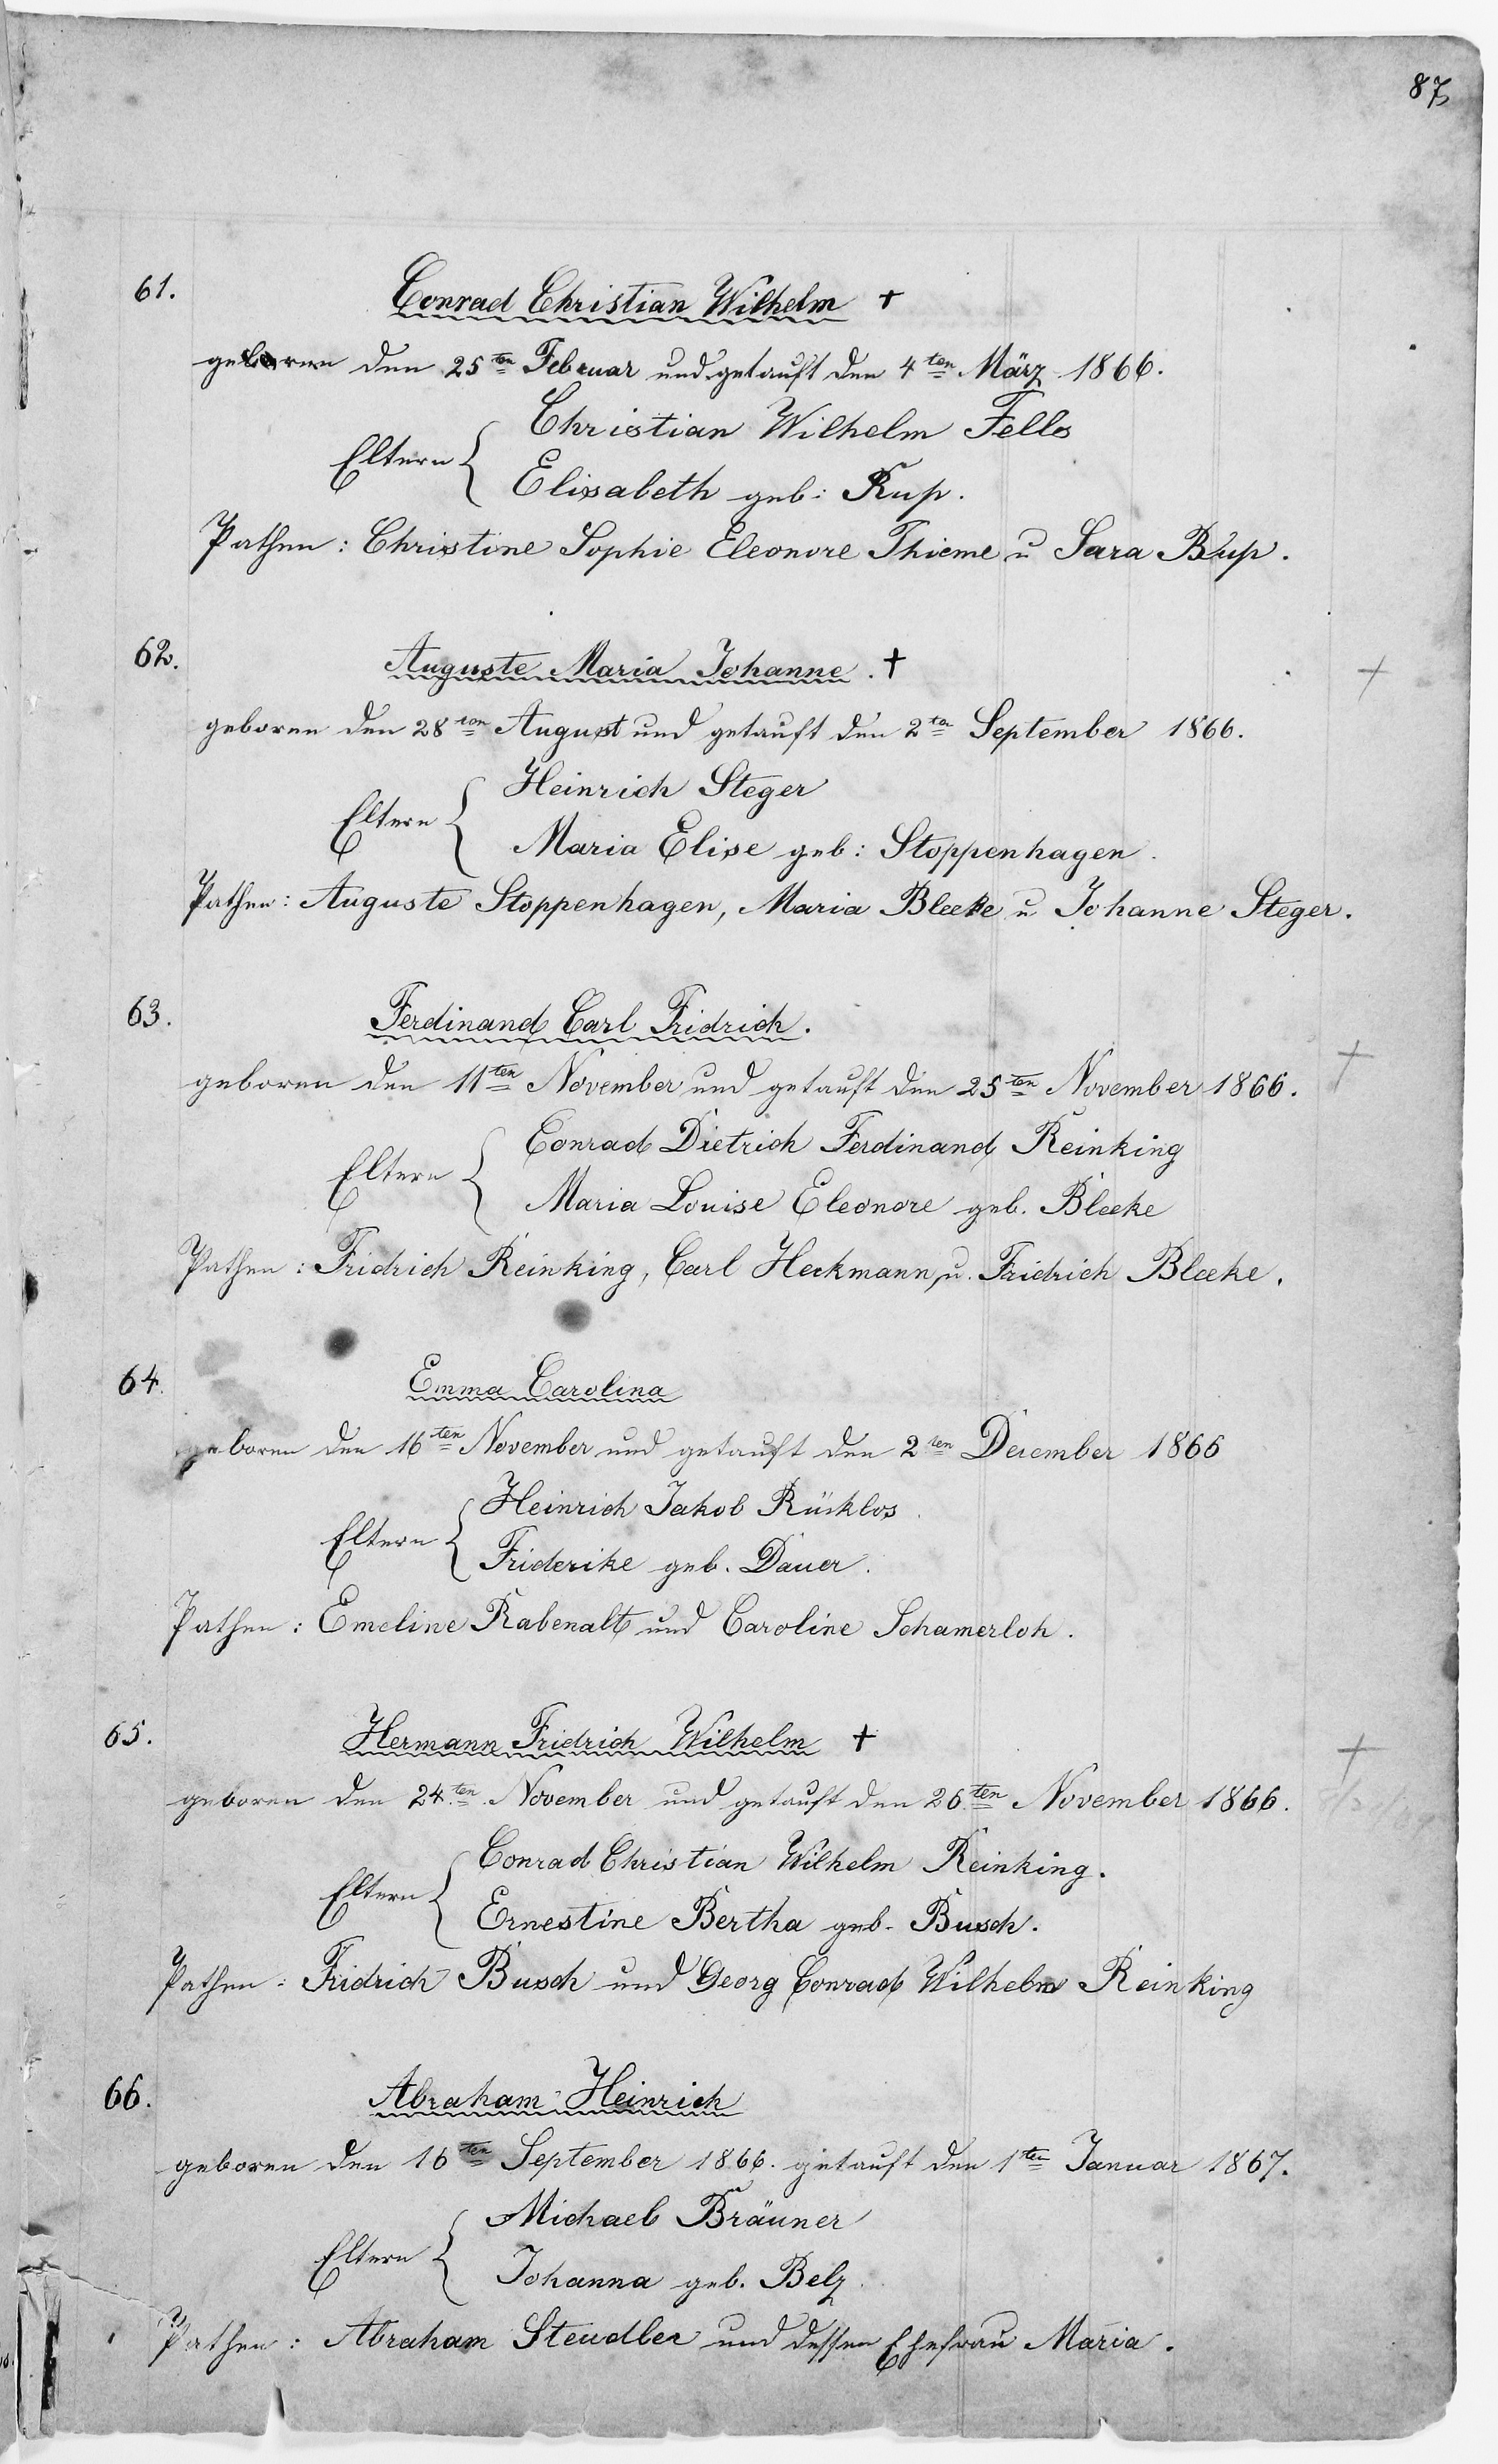 87
61. Conrad Christian Wilhelm +
geboren den 25ten Februar und getauft den 4ten März 1866.
Christian Wilhelm
Eltern {
Elisabeth geb: Rup.
Pathen: Christine Sophie Eleonore Thieme u Sara Rup.
62. Auguste Maria Johanne. +
geboren den 28ten August und getauft den 2ten September 1866.
Heinrich Steger
Eltern {
Maria Elise geb: Stoppenhagen.
Pathen: Auguste Stoppenhagen, Maria Bleeke u Johanne Steger.
63. Ferdinand Carl Fridrich.
geboren den 11ten November und getauft den 25ten November 1866.
Conrad Dietrich Ferdinand Reinking
Eltern {
Maria Louise Eleonore geb. Bleeke
Pathen: Fridrich Reinking, Carl Heckmann, u. Fridrich Bleeke.
64. Emma Carolina
geboren den 16ten November und getauft den 2ten December 1866
Heinrich Jakob
Eltern {
Friderike geb. Dauer.
Pathen: Emeline Rabenalt und Caroline Schamerloh.
65. Hermann Fridrich Wilhelm +
geboren den 24ten November und getauft den 26ten November 1866.
Conrad Christian Wilhelm Reinking.
Eltern {
Ernestine Bertha geb. Busch.
Pathen: Fridrich Busch und Georg Conrad Wilhelm Reinking
66. Abraham Heinrich
geboren den 16ten September 1866. getauft den 1ten Januar 1867.
Michael Bräuner
Eltern {
Johanna geb. Belz.
Pathen: Abraham Steudler und dessen Ehefrau Maria.